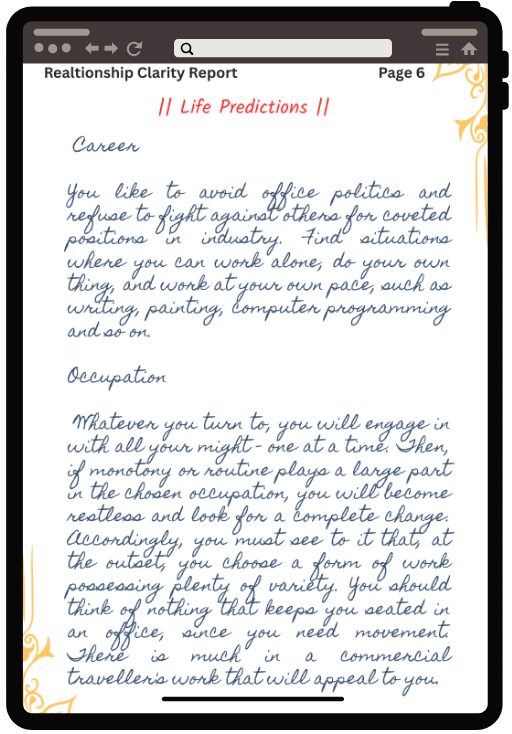 Realtionship Clarity Report Page 6
|| Life Predictions ||
Career
You like to avoid office politics and
refuse to fight against others for coveted
positions in industry. Find situations
where you can work alone, do your own
thing, and work at your own pace, such as
writing, painting, computer programming
and so on.
Occupation
Whatever you turn to, you will engage in
with all your might - one at a time. Then,
if monotony or routine plays a large part
in the chosen occupation, you will become
restless and look for a complete change.
Accordingly, you must see to it that, at
the outset, you choose a form of work
possessing plenty of variety. You should
think of nothing that keeps you seated in
an office, since you need movement.
There is much in a commercial
traveller's work that will appeal to you.